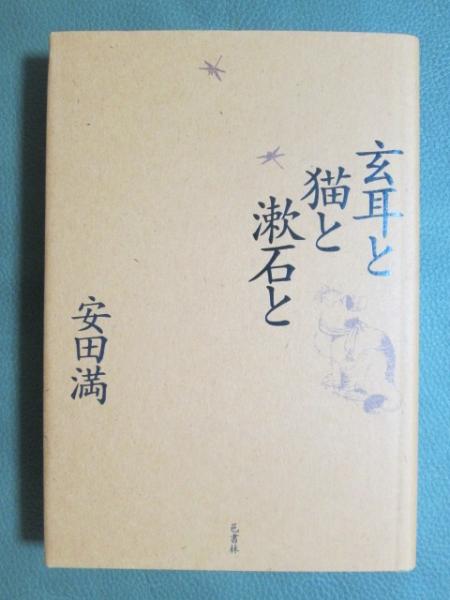 玄耳と
猫と
漱石と
安田満
邑書林